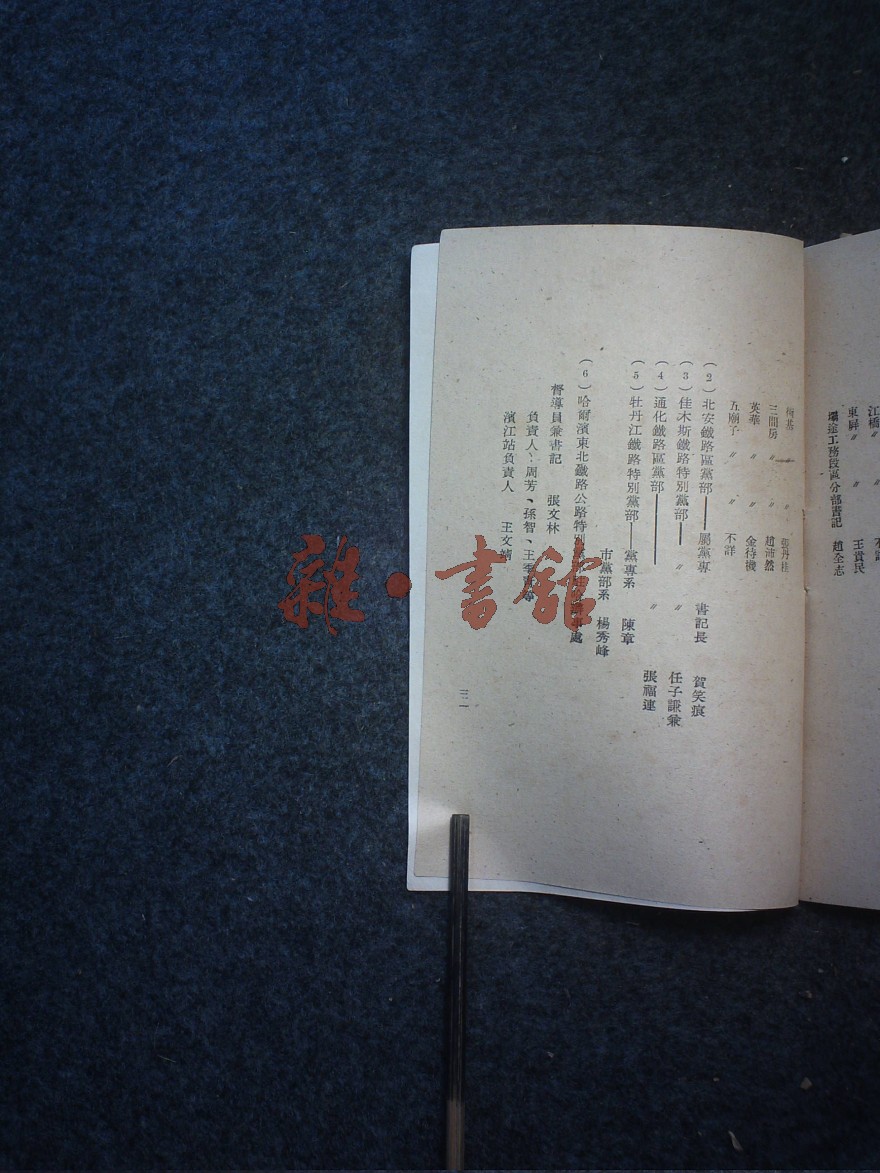 江橋 〃
東屏 〃 〃 王貴民
工務段區分部書記 趙全志
基 〃 張丹桂
三間房 〃 〃 趙沛然
英華 〃 金待機
五廟子 〃 〃 不詳
（2）北安鐵路區黨部——屬黨專 書記長 賀笑痕
（3）佳木斯鐵路特別黨部—— 〃 〃 任子謙兼
（4）通化鐵路區黨部—— 〃 張福連
（5）牡丹江鐵路特別黨部——黨專系 陳章
市黨部系 楊秀峰
（6）哈爾濱東北鐵路公路特別黨 處
督導員兼書記 張文林
負責人、周芳、孫智、王季 等
濱江站負責人 王文
三一
雜·書館